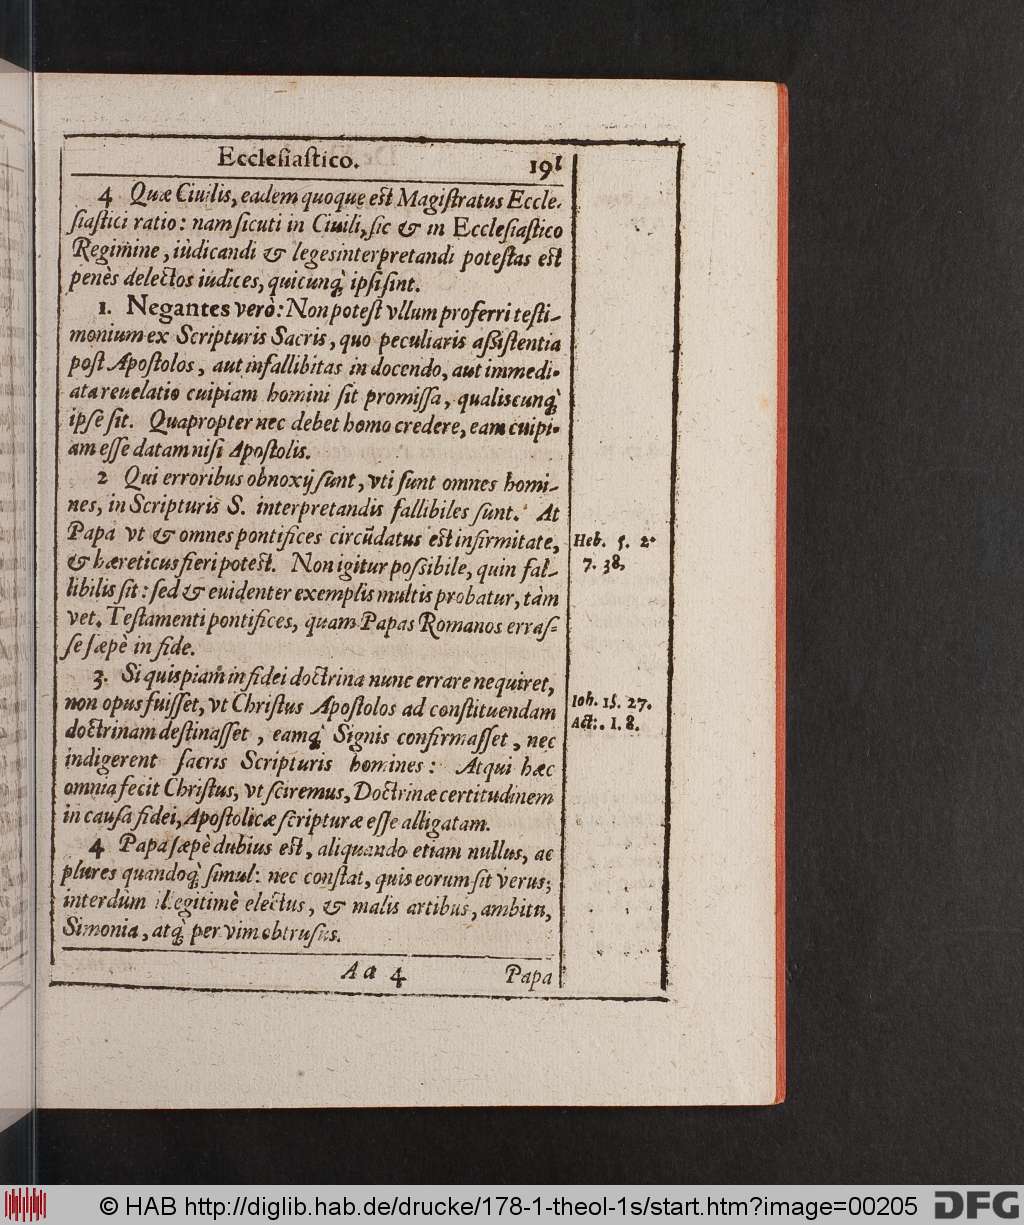 Eccleſiaſtico. 191
4 Quæ Ciuilis, eadem quoque est Magiſtratus Eccle-
ſiaſtici ratio: nam ſicuti in Ciuili, ſic & in Eccleſiaſtico
Regimine, iùdicandi & leges interpretandi poteſtas est
penès delectos iudices, quicunq̀ ipſi ſint.
1. Negantes verò: Non poteſt vllum proferri teſti-
monium ex Scripturis Sacris, quo peculiaris aſſiſtentia
poſt Apoſtolos, aut infallibitas in docendo, aut immedi-
ata reuelatio cuipiam homini ſit promiſſa, qualiscunq̀
ipſe ſit. Quapropter nec debet homo credere, eam cuipi-
am eſſe datam niſi Apoſtolis.
2 Qui erroribus obnoxij ſunt, vti ſunt omnes homi-
nes, in Scripturis S. interpretandis fallibiles ſunt. At
Papa vt & omnes pontifices circũdatus est infirmitate,
& hæreticus fieri potest. Non igitur poſſibile, quin fal-
libilis ſit: ſed & euidenter exemplis multis probatur, tàm
vet. Teſtamenti pontifices, quam Papas Romanos erraſ-
ſe ſæpè in fide.
Heb. 5. 2.
7. 38,
3. Si quispiam in fidei doctrina nunc errare nequiret,
non opus fuiſſet, vt Chriſtus Apoſtolos ad conſtituendam
doctrinam deſtinaſſet, eamq̀ Signis confirmaſſet, nec
indigerent ſacris Scripturis homines: Atqui hæc
omnia fecit Chriſtus, vt ſciremus, Doctrinæ certitudinem
in cauſa fidei, Apoſtolicæ ſcripturæ eſſe alligatam.
Ioh. 15. 27.
Act. 1. 8.
4 Papa ſæpè dubius est, aliquando etiam nullus, ac
plures quandoq̀ ſimul: nec conſtat, quis eorum ſit verus;
interdùm illegitimè electus, & malis artibus, ambitu,
Simonia, atq̀ per vim obtruſus.
Aa 4 Papa
© HAB http://diglib.hab.de/drucke/178-1-theol-1s/start.htm?image=00205 DFG